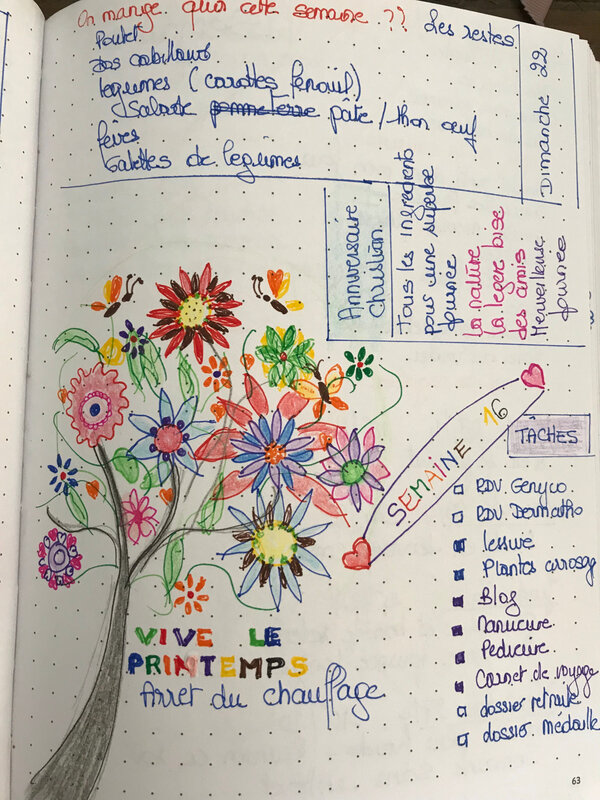 On mange quoi cette semaine ??
Les restes.
Poulet
dos cabillaud
legumes (carottes fenouil)
Salade pomme terre pâte / thon œuf
fèves
Galettes de légumes
Dimanche 22
Anniversaire
Christian.
Tous les ingrédients
pour une superbe
journée
La nature
la légère brise
des amis
Merveilleuse
journée
SEMAINE 16
TÂCHES
RDV. Genyco.
RDV. Dermatho
lessive
Plantes arrosage
Blog
Manucure
Pedicure
Carnet de voyage
dossier retraite
dossier Médaille
VIVE LE
PRINTEMPS
Arret du chauffage
63